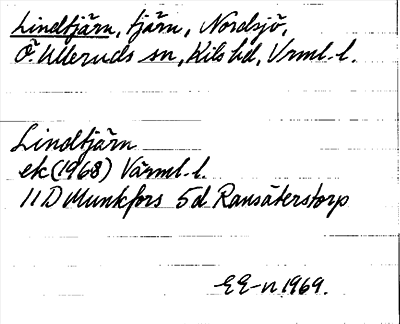 Lindtjärn, tjärn, Nordsjö,
Ö. Ulleruds sn, Kils hd, Vrml. l.
Lindtjärn
ek (1968) Värml. l.
11 D Munkfors 5d Ransäterstorp
EE-n 1969.